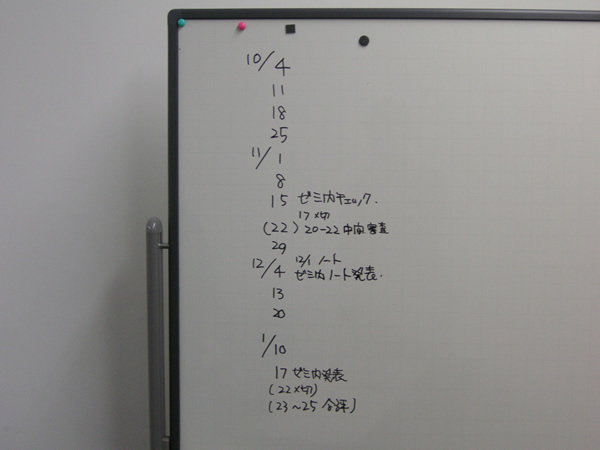 10/4
11
18
25
11/1
8
15 ゼミ内チェック.
17〆切
(22) 20-22 中間審査
29
12/1 ノート
12/4 ゼミ内ノート発表.
13
20
1/10
17 ゼミ内発表
(22〆切)
(23～25 合評)